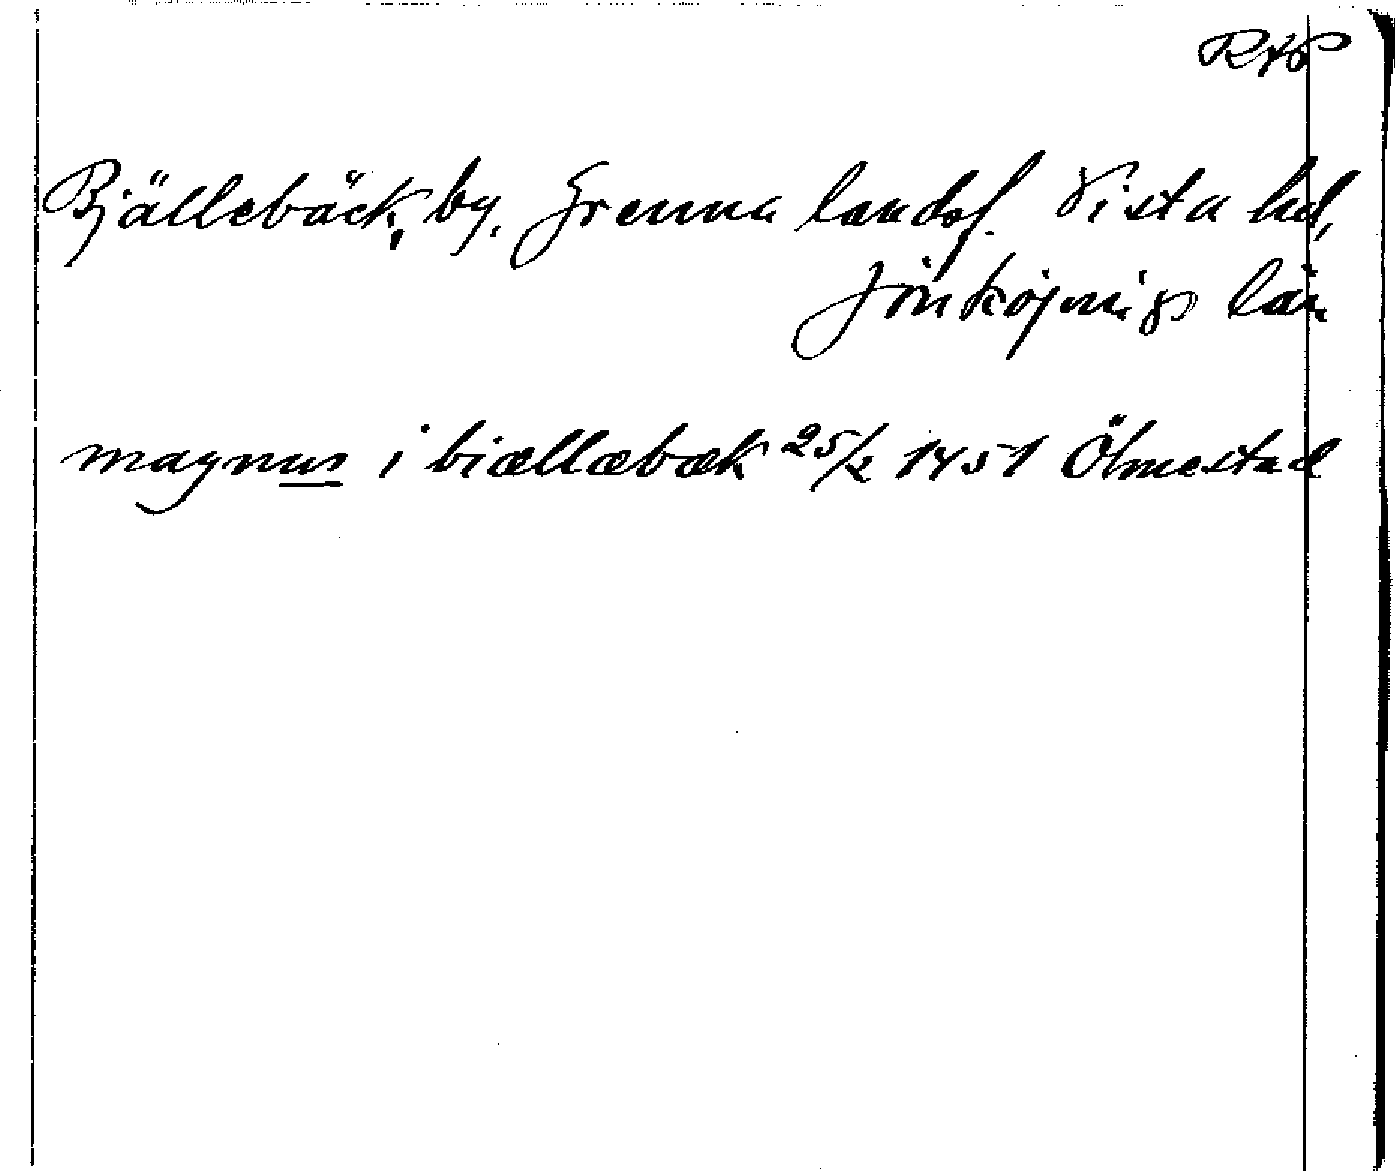 RAP
Bjällebäck, by. Grenna landsf. Vista hd,
Jönköpings län
magnus i biællæbæk 25/2 1451 Ölmestad